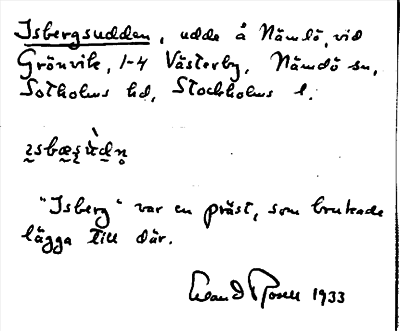 Isbergsudden, udde å Nämdö, vid
Grönvik, 1-4 Västerby, Nämdö sn,
Sotholms hd, Stockholms l.
"Isberg" var en präst, som brukade
lägga till där.
Rosell 1933